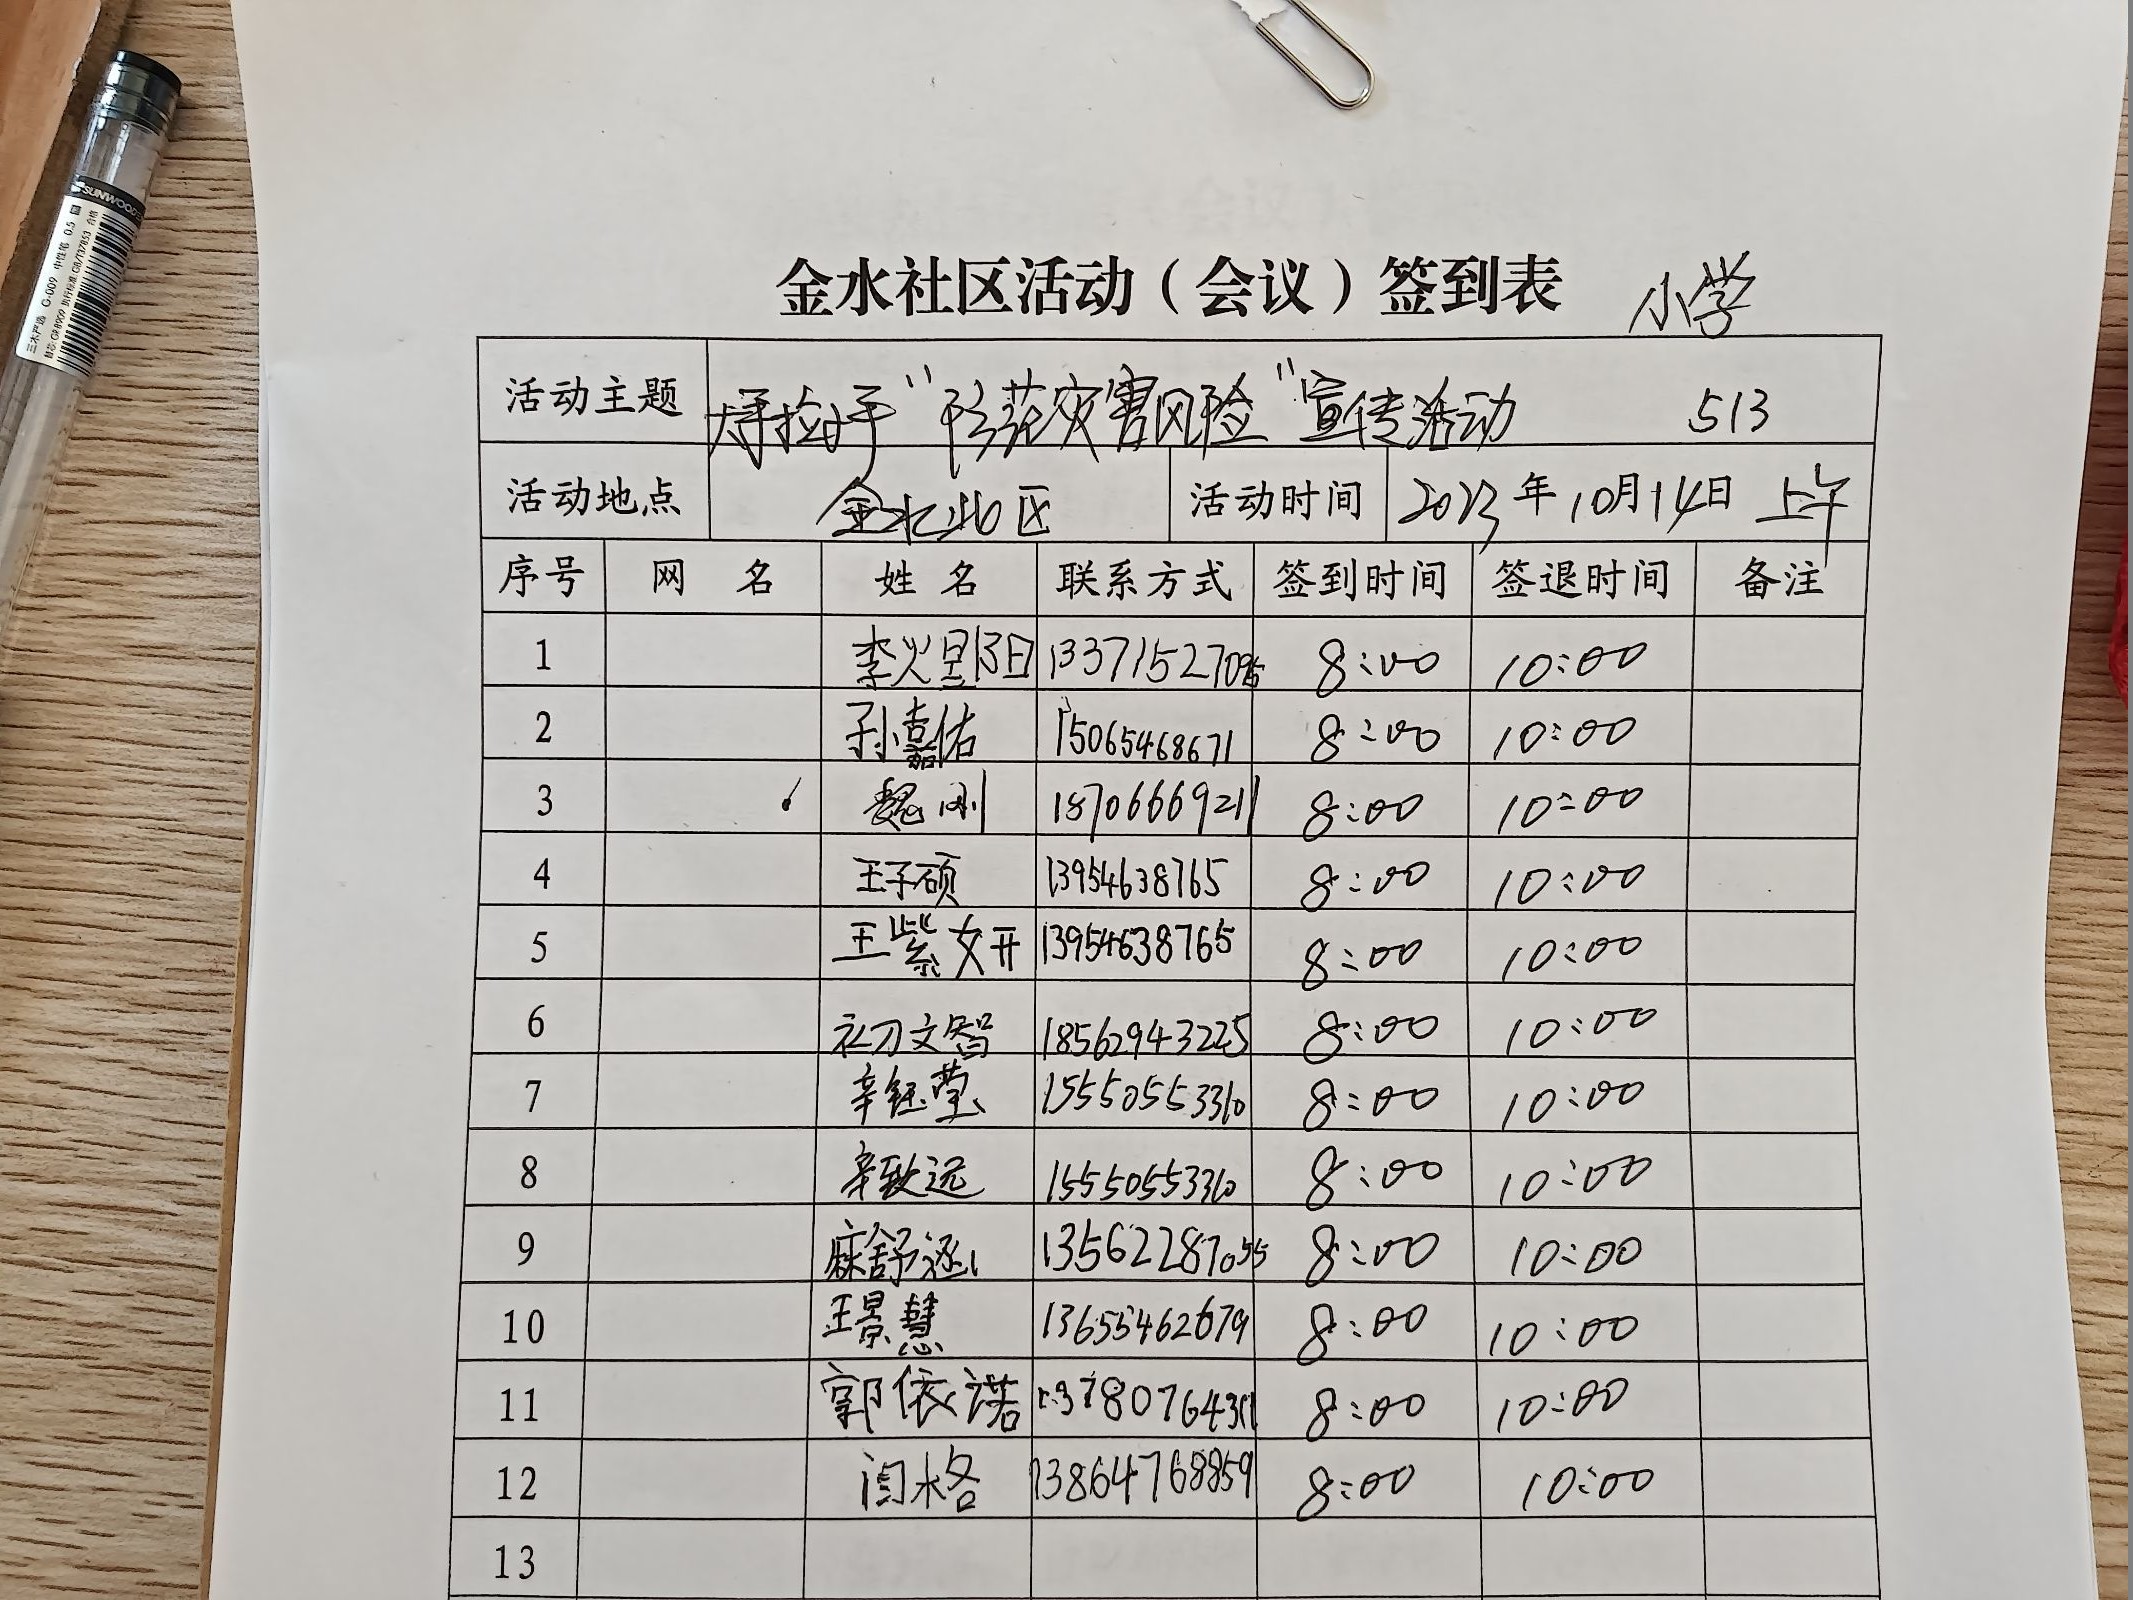 SUNWOOD
三木严选 G-009 中性笔 0.5 黑
替芯:GR8909 执行标准:GB/T37853 合格
金水社区活动（会议）签到表 小学
活动主题 大手拉小手“防范灾害风险”宣传活动 513
活动地点 金水北区 活动时间 2023年10月14日 上午
序号 网名 姓名 联系方式 签到时间 签退时间 备注
1 李火昱阳 13371527095 8:00 10:00
2 孙嘉佑 15065468671 8:00 10:00
3 魏刚 18706669211 8:00 10:00
4 王子硕 13954638765 8:00 10:00
5 王紫妍 13954638765 8:00 10:00
6 初文智 18562943225 8:00 10:00
7 辛钰莹 15550553310 8:00 10:00
8 辛致远 15550553310 8:00 10:00
9 麻舒涵 13562287055 8:00 10:00
10 王景慧 13655462679 8:00 10:00
11 郭依诺 8:00 10:00
12 闫格 13864768859 8:00 10:00
13